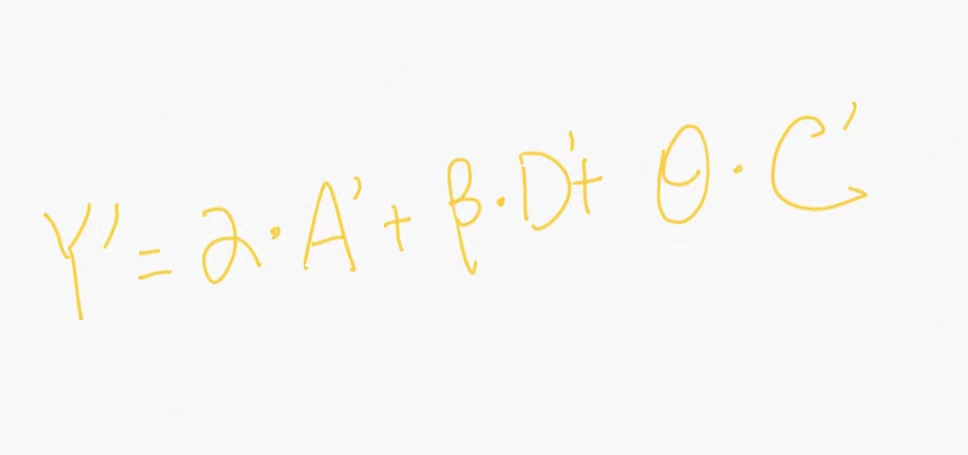 Y' = α · A' + β · D' + θ · C'